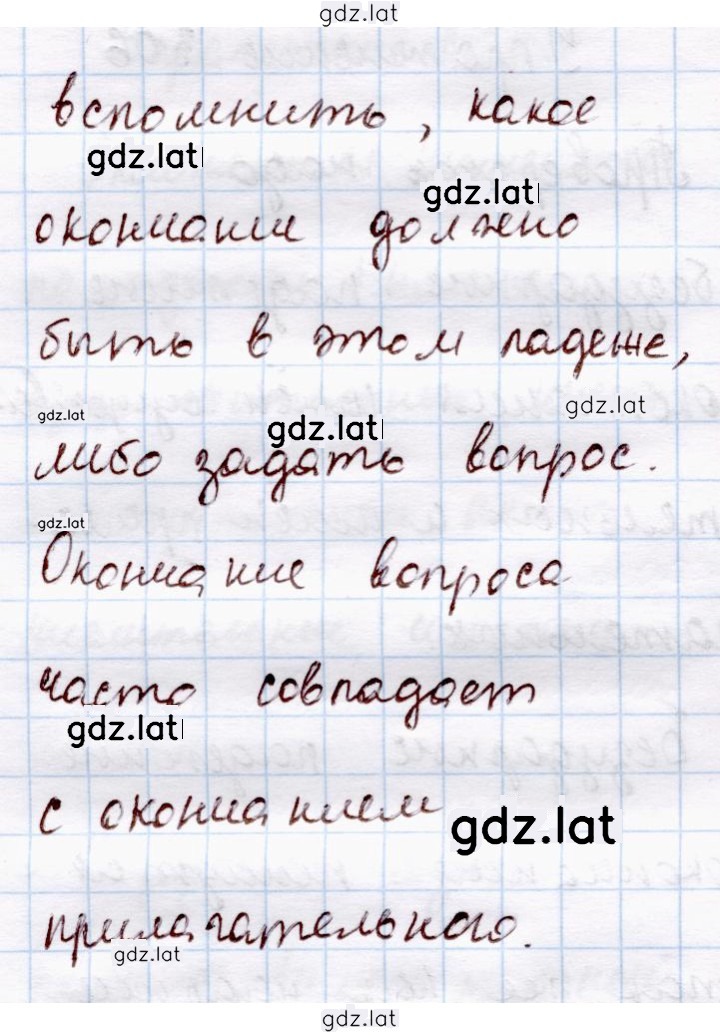 gdz.lat
вспомнить, какое
gdz.lat
gdz.lat
окончание должно
быть в этом падеже,
gdz.lat
gdz.lat
gdz.lat
либо задать вопрос.
gdz.lat
Окончание вопроса
часто совпадает
gdz.lat
с окончанием
gdz.lat
прилагательного.
gdz.lat
gdz.lat